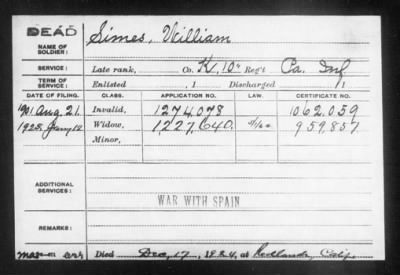 DEAD
NAME OF SOLDIER: Simes, William
SERVICE: Late rank, Co. K, 10" Reg't Pa. Inf
TERM OF SERVICE: Enlisted , 1 Discharged , 1
DATE OF FILING. CLASS. APPLICATION NO. LAW. CERTIFICATE NO.
1901 Aug. 21. Invalid, 1274,078 1062,059
1925, Jany 12 Widow, 1,227,640. 959,857
Minor,
ADDITIONAL SERVICES:
WAR WITH SPAIN
REMARKS:
Died Dec, 17, 1924, at Redlands, Calif.